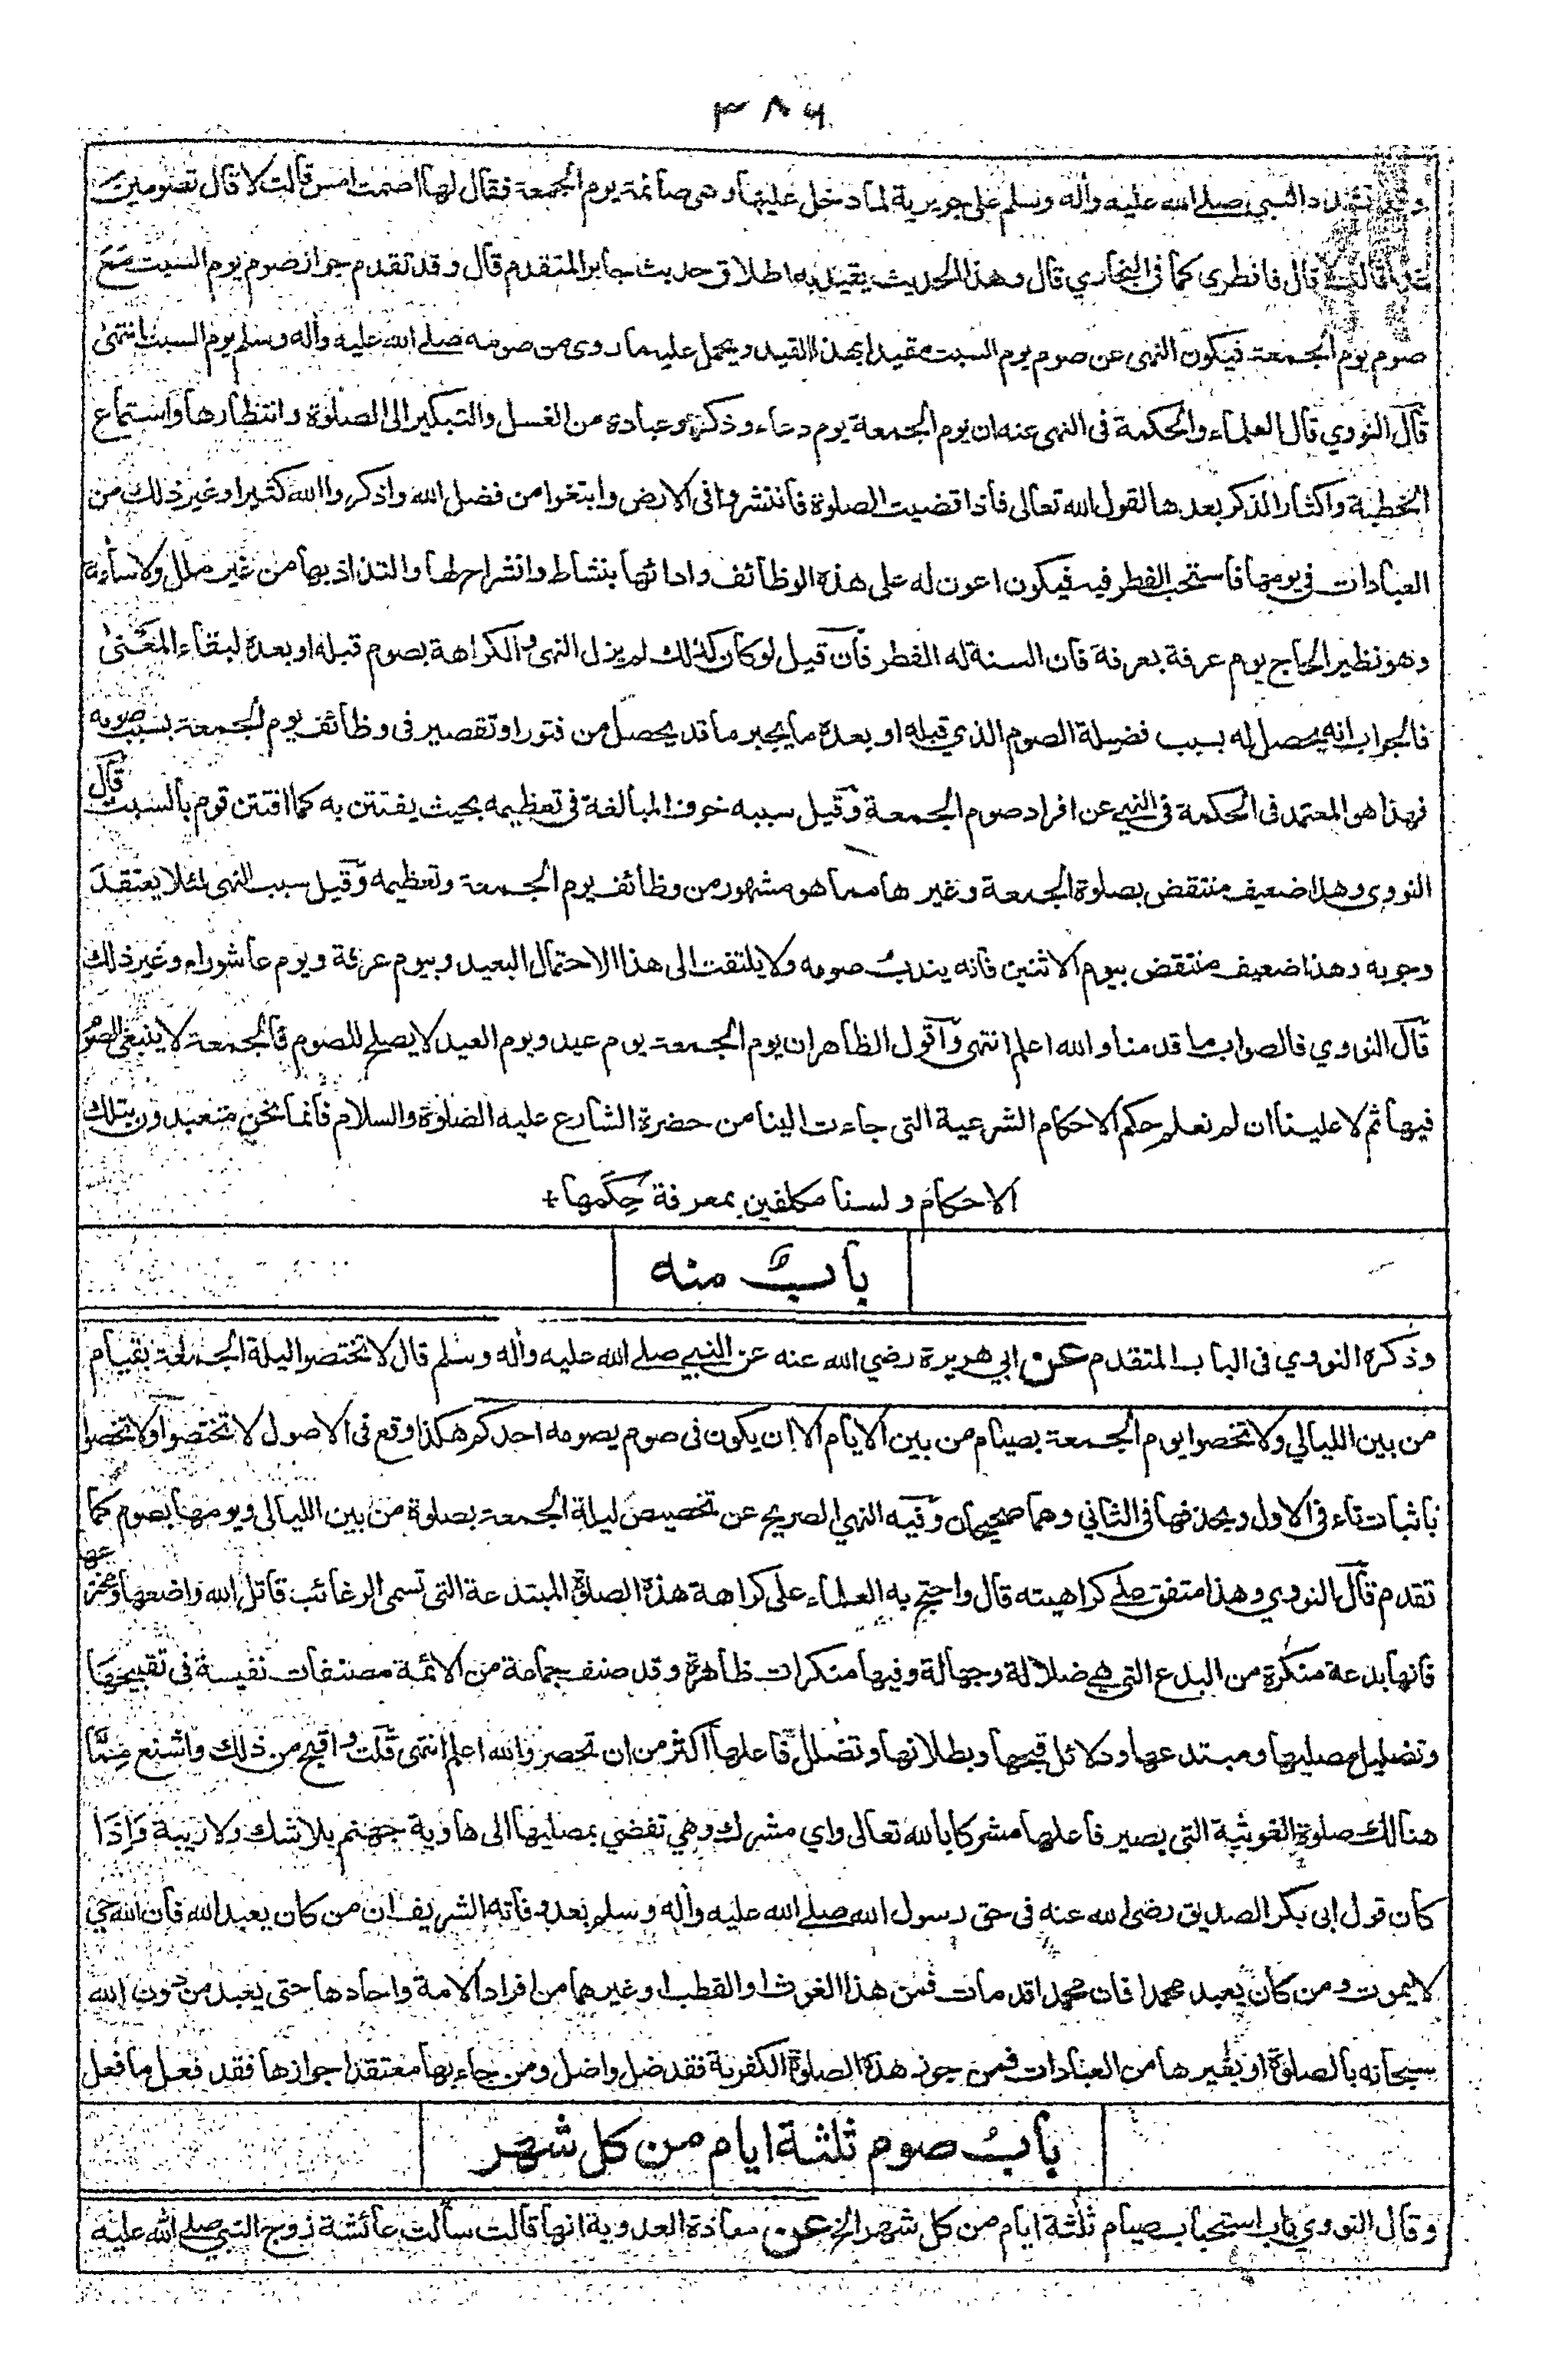 ٣٨٦
النبي صلے الله عليه وأله وسلم على جويرية لما دخل عليها وهى صائمة يوم الجمعة فقال لها اصمت امس قالت لا قال تصومين
قال فافطرى كما فى البخاري قال وهذا الحديث يقيد به اطلاق حديث جابر المتقدم قال وقد تقدم جواز صوم يوم السبت مع
صوم يوم الجمعة فيكون النهى عن صوم يوم السبت مقيدا بهذا القيد ويحمل عليه ما روى من صومه صلے الله عليه وأله وسلم يوم السبت انتهى
قال النووي قال العلماء والحكمة فى النهى عنه ان يوم الجمعة يوم دعاء وذكر وعبادة من الغسل والتبكير الى الصلوة وانتظارها واستماع
الخطبة واكثار الذكر بعدها لقول الله تعالى فاذا قضيت الصلوة فانتشروا فى الارض وابتغوا من فضل الله واذكروا الله كثيرا وغير ذلك من
العبادات فى يومها فاستحب الفطر فيه فيكون اعون له على هذه الوظائف وادائها بنشاط وانشراح لها والتذاذ بها من غير ملل ولا سأمة
وهو نظير الحاج يوم عرفة بعرفة فان السنة له الفطر فان قيل لو كان كذلك لم يزل النهى والكراهة بصوم قبله او بعده لبقاء المعنى
فالجواب انه يحصل له بسبب فضيلة الصوم الذي قبله او بعده ما يجبر ما قد يحصل من فتور او تقصير فى وظائف يوم الجمعة بسبب صومه
فهذا هو المعتمد فى الحكمة فى النهى عن افراد صوم الجمعة وقيل سببه خوف المبالغة فى تعظيمه بحيث يفتتن به كما افتتن قوم بالسبت قال
النووي وهذا ضعيف منتقض بصلوة الجمعة وغيرها مما هو مشهور من وظائف يوم الجمعة وتعظيمه وقيل سبب النهى لئلا يعتقد
وجوبه وهذا ضعيف منتقض بيوم الاثنين فانه يندب صومه ولا يلتفت الى هذا الاحتمال البعيد وبيوم عرفة ويوم عاشوراء وغير ذلك
قال النووي فالصواب ما قدمنا والله اعلم انتهى واقول الظاهر ان يوم الجمعة يوم عيد ويوم العيد لا يصلح للصوم فالجمعة لا ينبغى الصوم
فيها ثم لا علينا ان لم نعلم حكم الاحكام الشرعية التى جاءت الينا من حضرة الشارع عليه الصلوة والسلام فانما نحن متعبدون بتلك
الاحكام ولسنا مكلفين بمعرفة حكمها +
باب منه
وذكره النووي فى الباب المتقدم عن ابي هريرة رضي الله عنه عن النبي صلے الله عليه وأله وسلم قال لا تختصوا ليلة الجمعة بقيام
من بين الليالي ولا تخصوا يوم الجمعة بصيام من بين الايام الا ان يكون فى صوم يصومه احدكم هكذا وقع فى الاصول لا تختصوا ولا تخصوا
باثبات تاء فى الاول وبحذفها فى الثاني وهما صحيحان وفيه النهي الصريح عن تخصيص ليلة الجمعة بصلوة من بين الليالى ويومها بصوم كما
تقدم قال النووي وهذا متفق على كراهيته قال واحتج به العلماء على كراهة هذه الصلوة المبتدعة التى تسمى الرغائب قاتل الله واضعها ومخترعها
فانها بدعة منكرة من البدع التى هى ضلالة وجهالة وفيها منكرات ظاهرة وقد صنف جماعة من الائمة مصنفات نفيسة فى تقبيحها
وتضليل مصليها ومبتدعها ودلائل قبحها وبطلانها وتضليل فاعلها اكثر من ان تحصر والله اعلم انتهى قلت واقبح من ذلك واشنع مما
هنالك صلوة الغوثية التى يصير فاعلها مشركا بالله تعالى واي مشرك وهي تفضي بمصليها الى هاوية جهنم بلا شك ولا ريبة واذا
كان قول ابى بكر الصديق رضى الله عنه فى حق رسول الله صلے الله عليه وأله وسلم بعد وفاته الشريف ان من كان يعبد الله فان الله حي
لا يموت ومن كان يعبد محمدا فان محمدا قد مات فمن هذا الغوث او القطب او غيرهما من افراد الامة واحادها حتى يعبد من دون الله
سبحانه بالصلوة او بغيرها من العبادات فمن جوز هذه الصلوة الكفرية فقد ضل واضل ومن جاء بها معتقدا جوازها فقد فعل ما فعل
باب صوم ثلثة ايام من كل شهر
وقال النووي باب استحباب صيام ثلثة ايام من كل شهر الخ عن معاذة العدوية انها قالت سألت عائشة زوج النبي صلے الله عليه